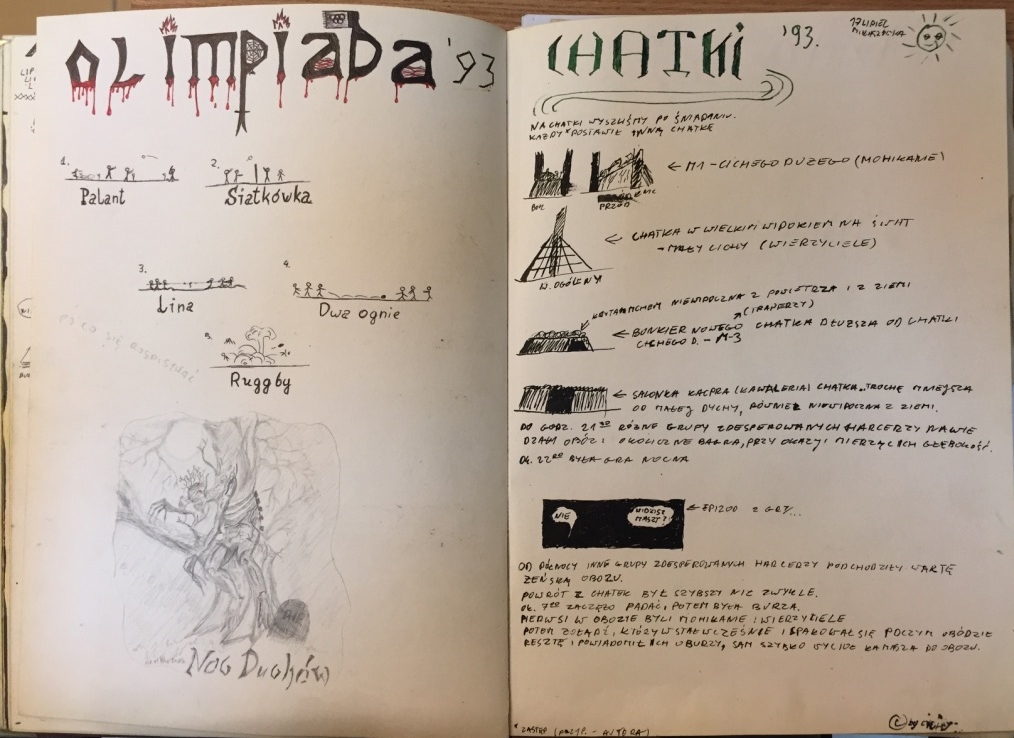 OLIMPIADA '93
1.
Palant
2.
Siatkówka
3.
Lina
4.
Dwa ognie
5.
Ruggby
po co się rozpisywać
Noc Duchów
CHATKI '93.
17 LIPIEC
NA CHATKI WYSZLIŚMY PO ŚNIADANIU.
KAŻDY* POSTAWIŁ INNĄ CHATKĘ
← M1 - CICHEGO DUŻEGO (MOHIKANIE)
BOK
PRZÓD
← CHATKA W WIELKIM WIDOKIEM NA ŚWIAT
- MAŁY CICHY (WIERZYCIELE)
W. OGÓLENYI
NIEWIDOCZNA Z POWIETRZA I Z ZIEMI
(TRAPERZY)
← BUNKIER NOWEGO CHATKA DŁUŻSZA OD CHATKI
CICHEGO D. - M-3
← SALONKA KACPRA (KAWALERIA) CHATKA TROCHĘ MNIEJSZA
OD MAŁEJ DYCHY, RÓWNIEŻ NIEWIDOCZNA Z ZIEMI.
DO GODZ. 21⁰⁰ RÓŻNE GRUPY ZDESPEROWANYCH HARCERZY NAWIE
DZAŁI OBÓZ I OKOLICZNE BAGRA, PRZY OKAZJI MIERZYC ICH GŁĘBOKOŚĆ.
OK. 22⁰⁰ BYŁA GRA NOCNA
NIE
WIDZISZ
MASZT?
← EPIZOD Z GRY...
OD PÓŁNOCY INNE GRUPY ZDESPEROWANYCH HARCERZY PODCHODZIŁY WARTĘ
ŻEŃSKĄ OBOZU.
POWRÓT Z CHATEK BYŁ SZYBSZY NIŻ ZWYKLE.
OK. 7⁰⁰ ZACZĘŁO PADAĆ, POTEM BYŁA BURZA.
PIERWSI W OBOZIE BYLI MOHIKANIE I WIERZYCIELE
POTEM ŻOŁĄDŹ, KTÓRY WSTAŁ WCZEŚNIE I SPAKOWAŁ SIĘ POCZYM OBUDZIŁ
RESZTĘ I POWIADOMIŁ ICH O BURZY, SAM SZYBKO WYCIOŁ KAMASZA DO OBOZU.
* ZASTĘP (PRZYP. - AUTORA)
© by